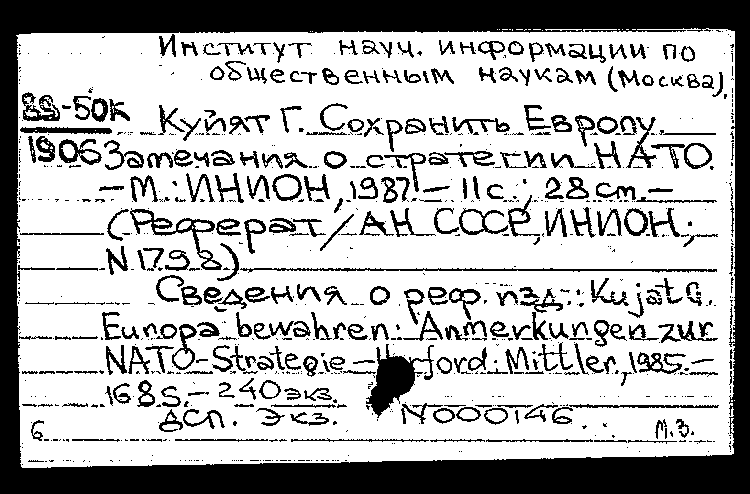 Институт науч. информации по
общественным наукам (Москва).
89-50К Куйят Г. Сохранить Европу.
19063 Замечания о стратегии НАТО.
— М.: ИНИОН, 1987. — 11 с.; 28 см. —
(Реферат / АН СССР, ИНИОН;
N 1798)
Сведения о реф. изд.: Kujat G.
Europa bewahren: Anmerkungen zur
NATO-Strategie — Herford: Mittler, 1985. —
168 S. — 240 экз.
ДСП. Экз. N000146
6 М.З.